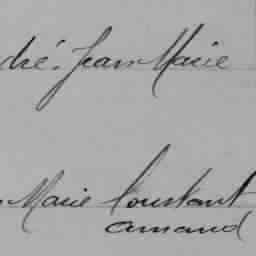 dré. Jean Marie
Marie Constant
Amand